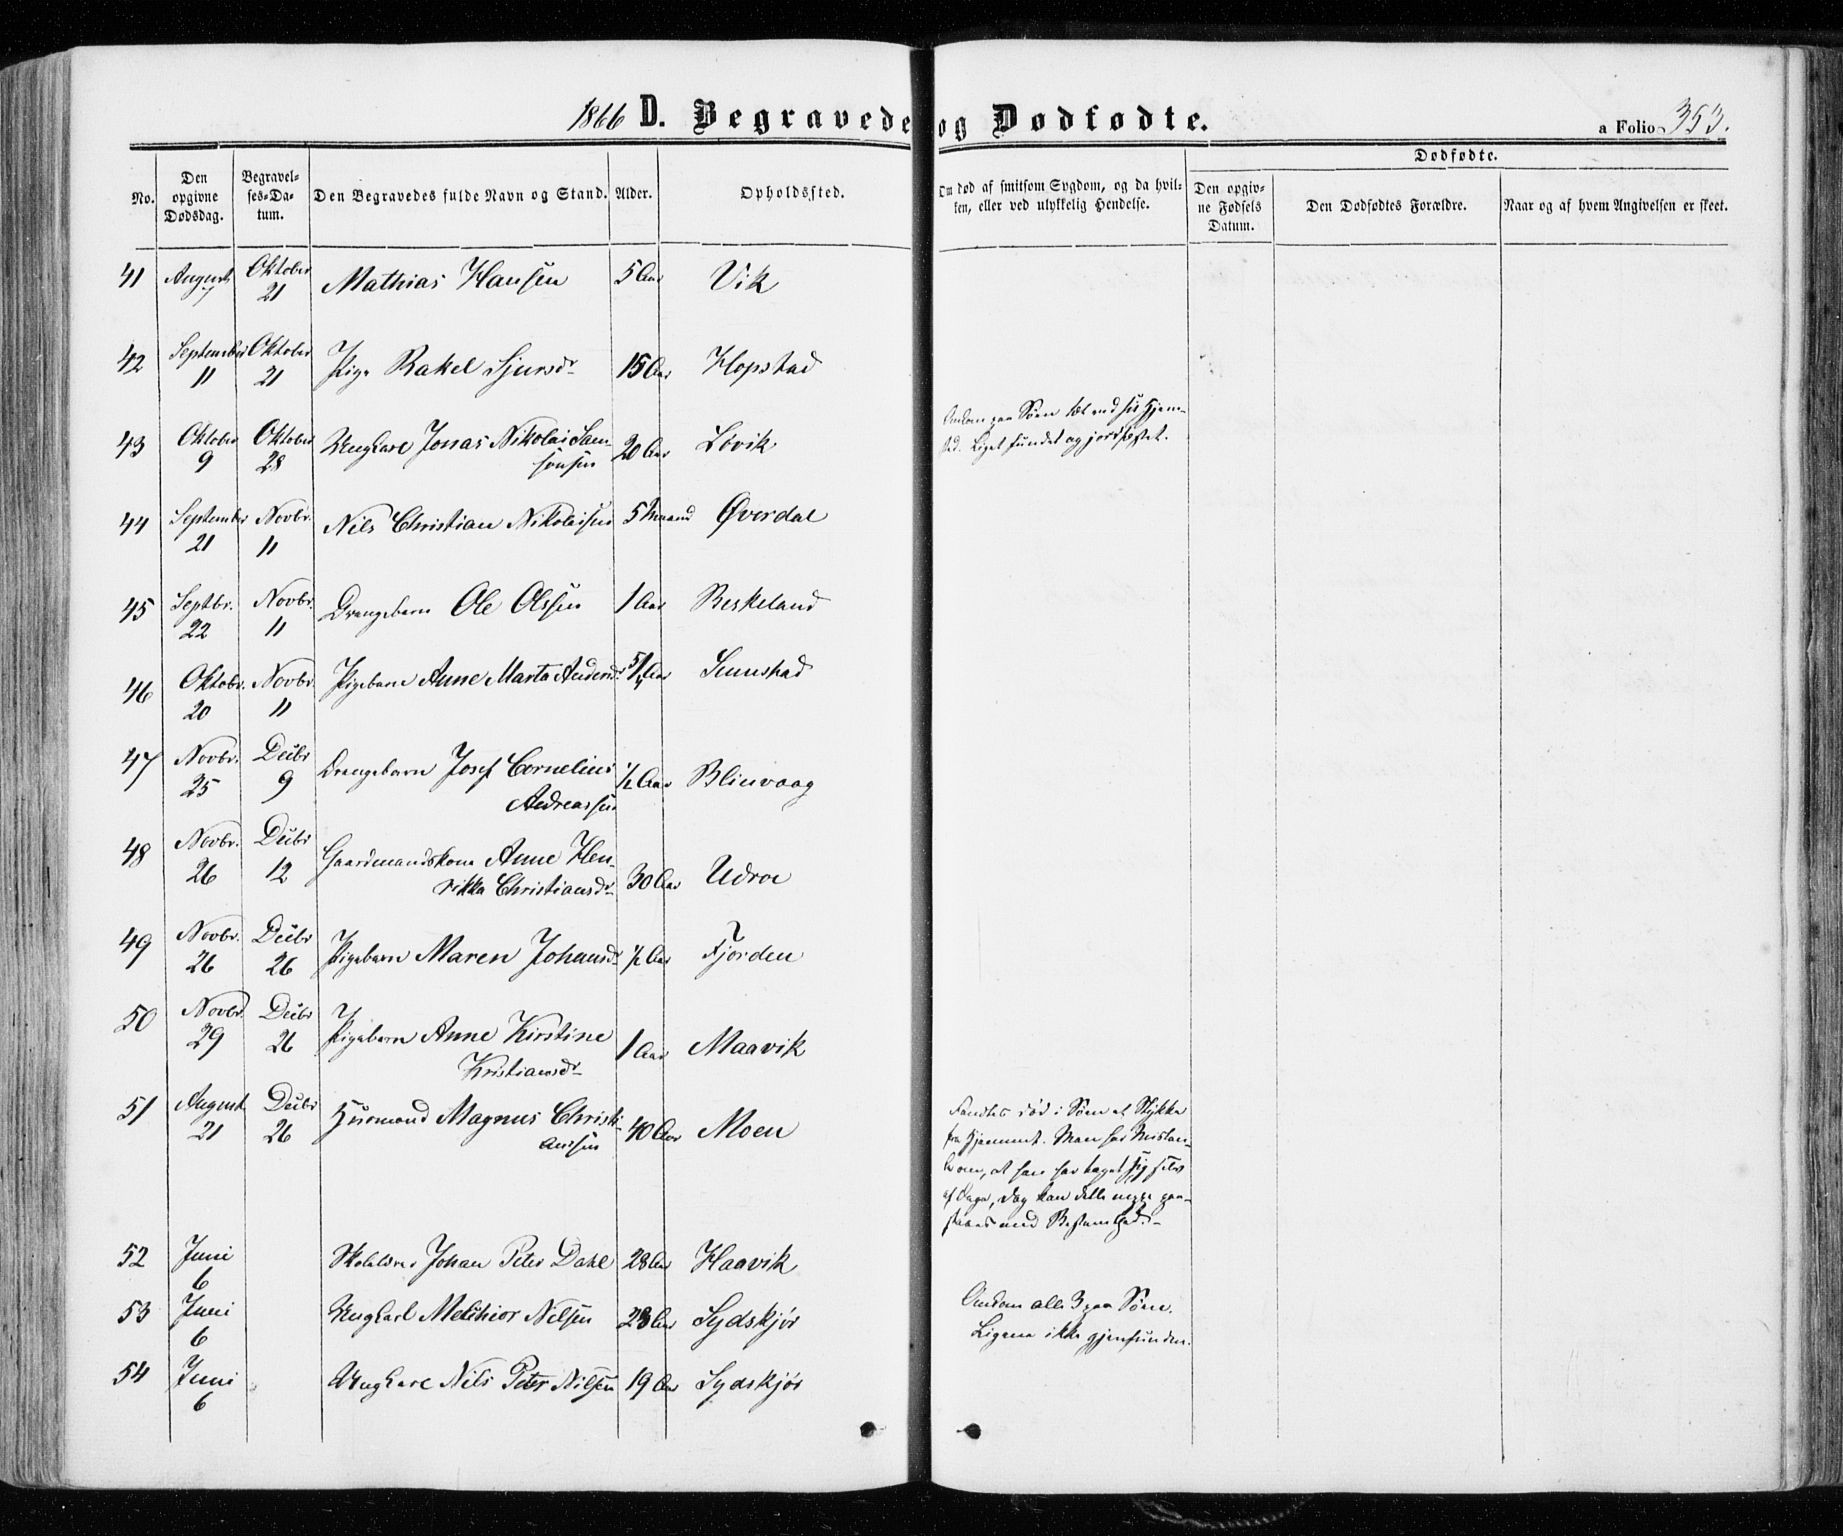 1866 D. Begravede og Dødfødte.
a Folio 353.
No.
Den opgivne Dødsdag.
Begravelses-Datum.
Den Begravedes fulde Navn og Stand.
Alder.
Opholdssted.
Om død af smitsom Sygdom, og da hvilken, eller ved ulykkelig Hendelse.
Dødfødte.
Den opgivne Fødsels Datum.
Den Dødfødtes Forældre.
Naar og af hvem Angivelsen er skeet.
41 August 7 Oktober 21 Mathias Hansen 5 Aar Vik
42 September 11 Oktober 21 Pige Rakel Sjursdr 15 Aar Hopstad
43 Oktober 9 Oktober 28 Ungkarl Jonas Nikolai Samsonsen 20 Aar Løvik
Omkom paa Søen tæt ved sit Hjemsted. Liget fundet og jordfæstet.
44 September 21 Novbr. 11 Nils Christian Nikolaisen 5 Maaned Øverdal
45 Septbr. 22 Novbr. 11 Drengebarn Ole Olssen 1 Aar Reskeland
46 Oktobr. 20 Novbr. 11 Pigebarn Anne Marta Andersdr 5/4 Aar Sumstad
47 Novbr. 25 Decbr 9 Drengebarn Josef Cornelius Andreassen 1/2 Aar Blievaag
48 Novbr. 26 Decbr 12 Gaardmandskone Anne Henrikka Christiansdr 30 Aar Udroe
49 Novbr. 26 Decbr 26 Pigebarn Maren Johansdr 1/2 Aar Fjorden
50 Novbr. 29 Decbr 26 Pigebarn Anne Kirstine Kristiansdr 1 Aar Maavik
51 August 21 Decbr 26 Husmand Magnus Christiansen 40 Aar Moen
Fandtes død i Søen et Stykke fra Hjemmet. Man har Mistanke om, at han har taget sig selv af Dage, dog kan dette neppe paastaaes med Bestemthed.
52 Juni 6 Skolelærer Johan Peter Dahl 28 Aar Haavik
53 Juni 6 Ungkarl Melchior Nilsen 23 Aar Sydskjør
Omkom alle 3 paa Søen. Ligene ikke gjenfundne.
54 Juni 6 Ungkarl Nils Peter Nilsen 19 Aar Sydskjør